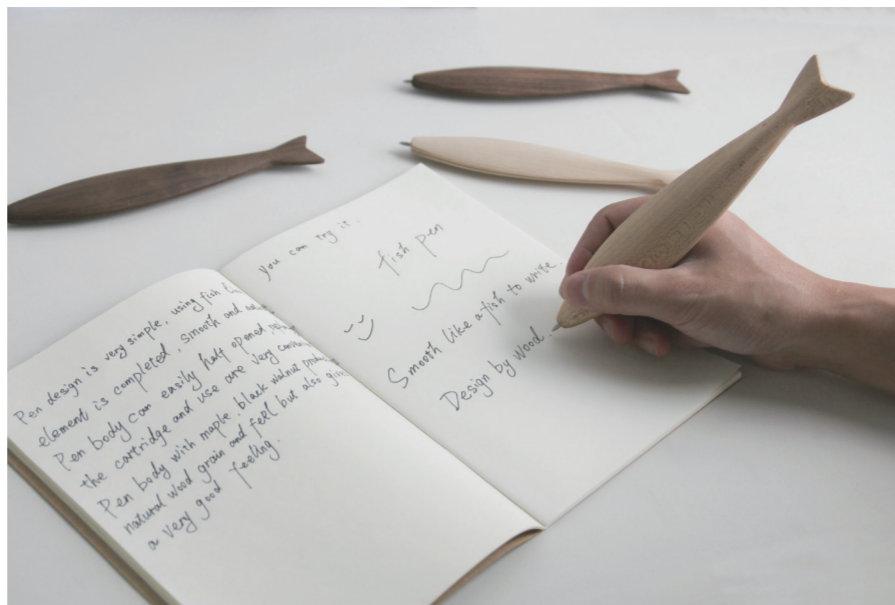 Pen design is very simple, using fish
element is completed, smooth and
Pen body can easily half opened,
the cartridge and use are very
Pen body with maple, black walnut
natural wood grain and feel but also
a very good feeling.
you can try it.
fish pen
Smooth like a fish to write.
Design by wood.